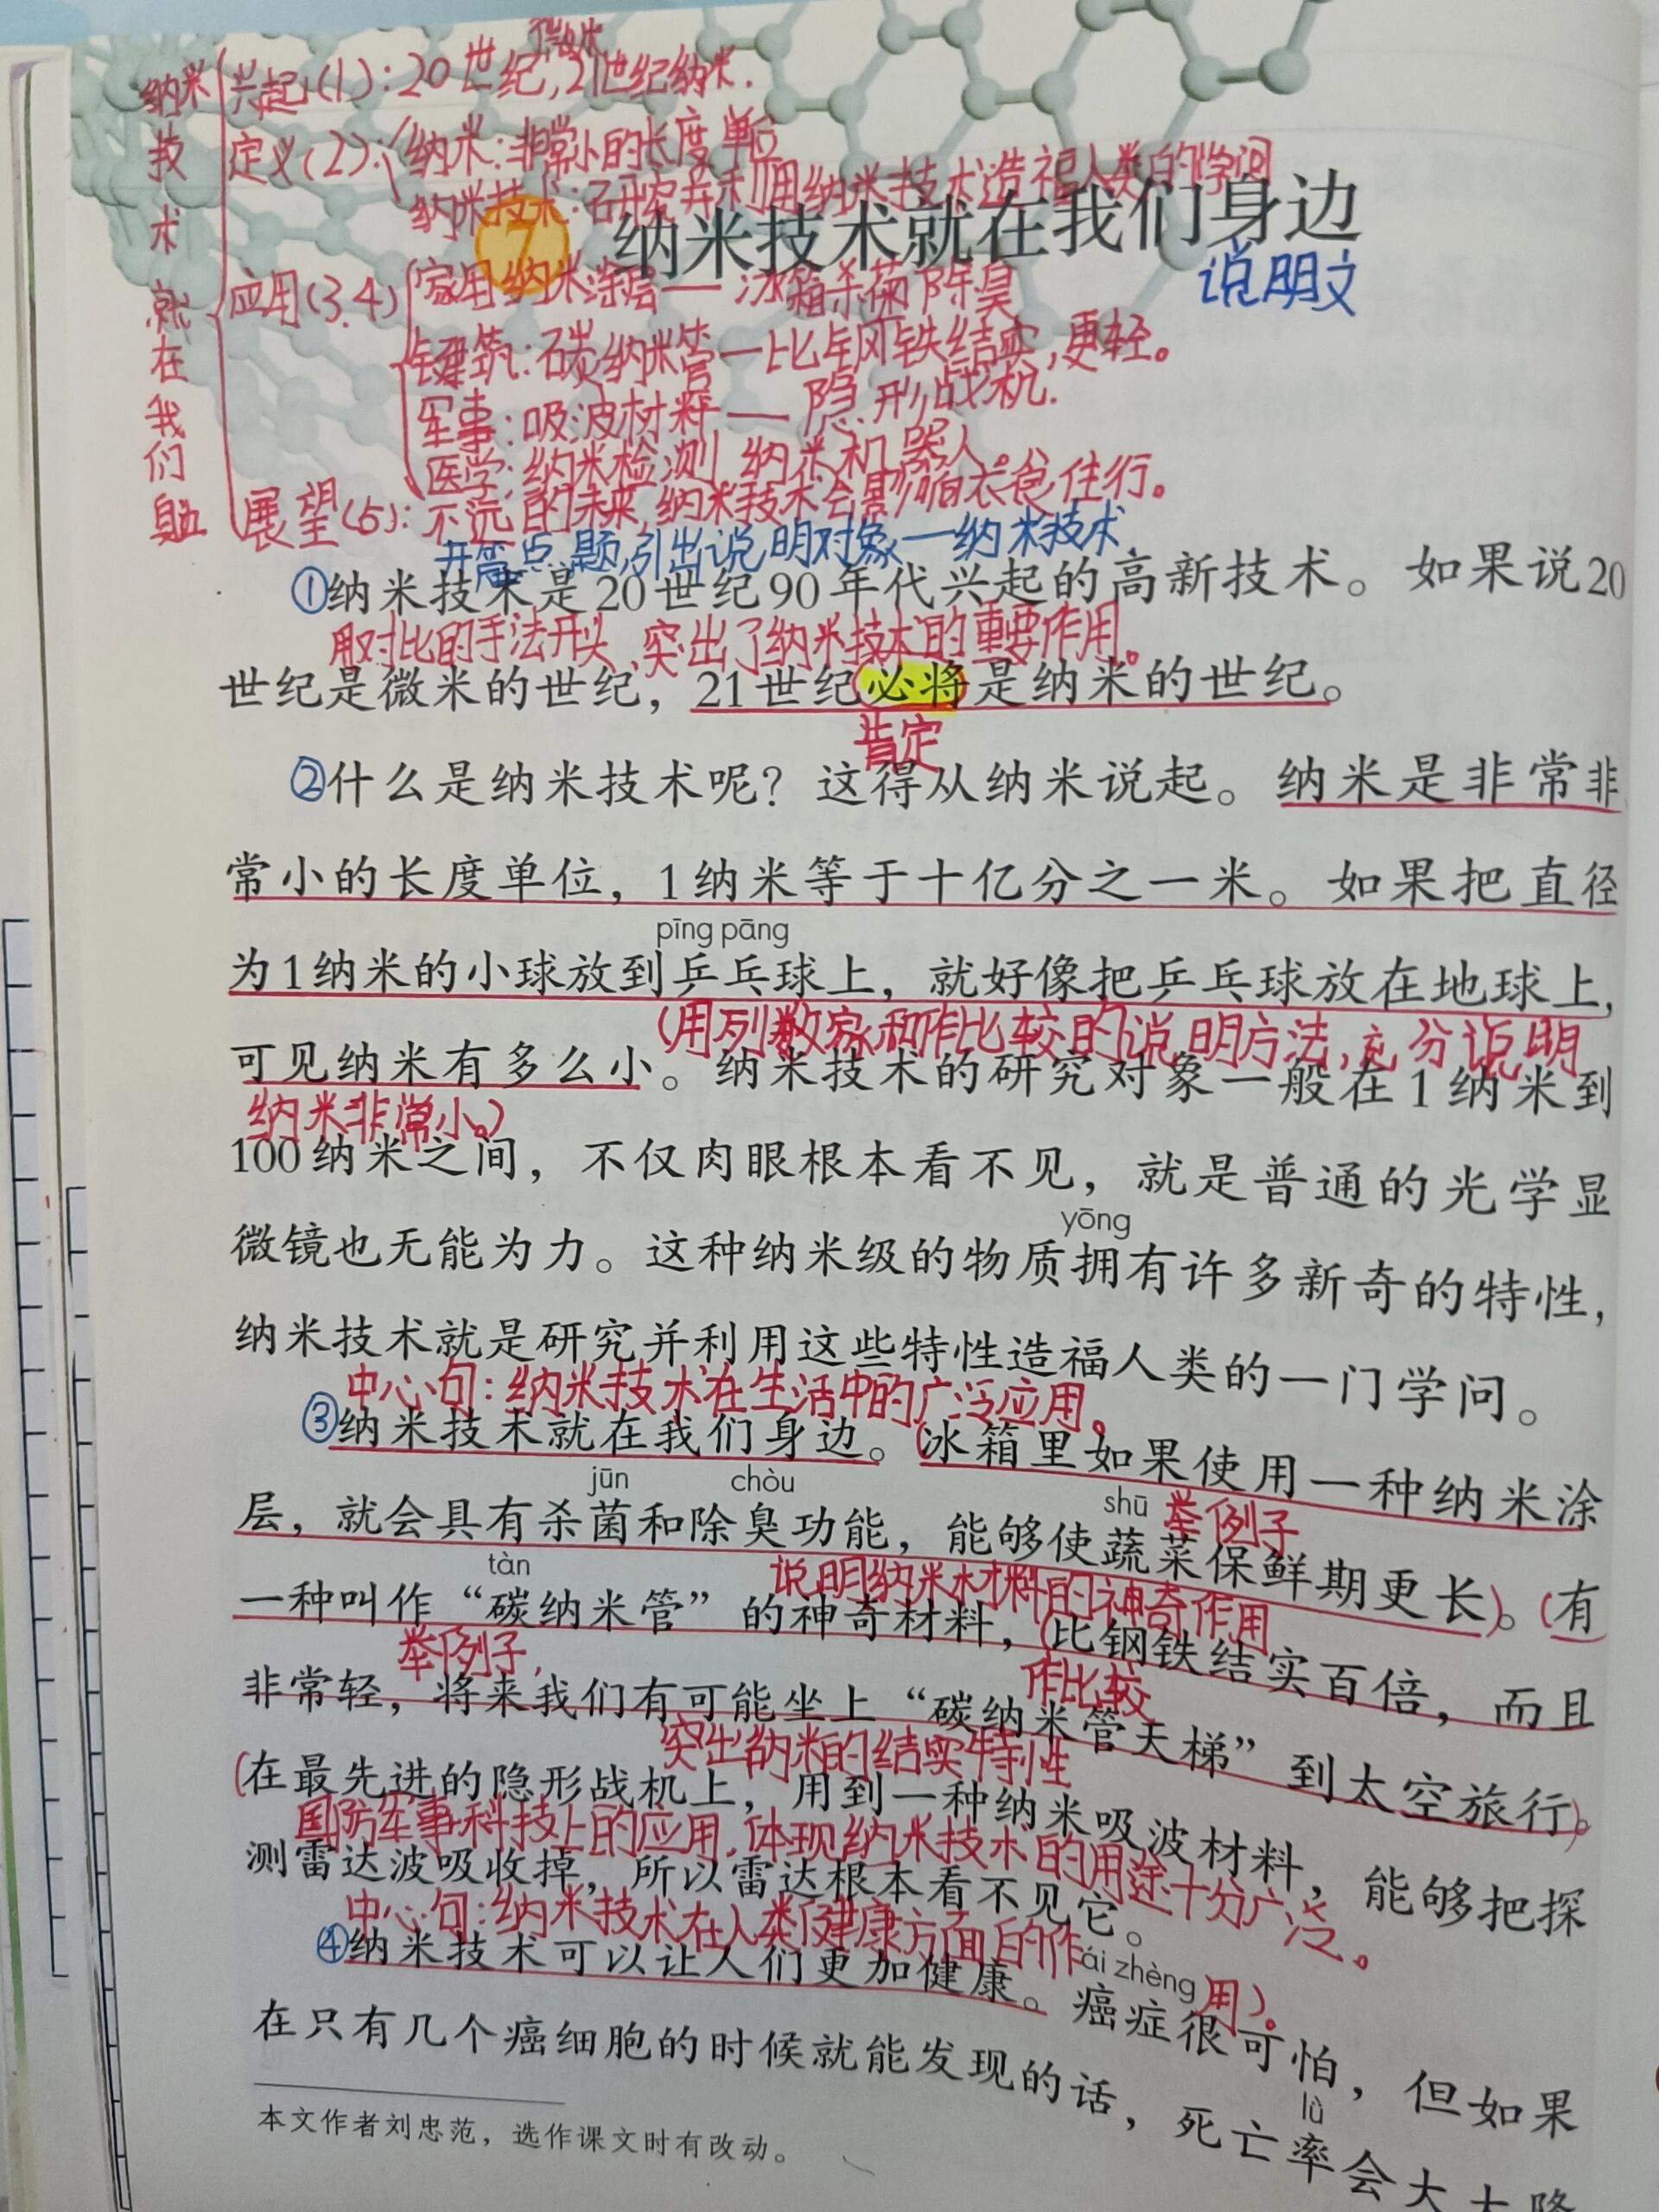 纳米技术就在我们身边
兴起(1):20世纪微米,21世纪纳米.
定义(2):纳米:非常小的长度单位
纳米技术:研究并利用纳米技术造福人类的学问
7 纳米技术就在我们身边
说明文
应用(3.4) 家用纳米涂层—冰箱杀菌除臭
键筑:碳纳米管—比钢铁结实,更轻。
军事:吸波材料—隐形战机.
医学:纳米检测,纳米机器人。
展望(5):不远的未来,纳米技术会影响衣食住行。
开篇点题,引出说明对象—纳米技术
①纳米技术是20世纪90年代兴起的高新技术。如果说20
用对比的手法开头,突出了纳米技术的重要作用。
世纪是微米的世纪,21世纪必将是纳米的世纪。
肯定
②什么是纳米技术呢?这得从纳米说起。纳米是非常非
常小的长度单位,1纳米等于十亿分之一米。如果把直径
pīng pāng
为1纳米的小球放到乒乓球上,就好像把乒乓球放在地球上,
(用列数家和作比较的说明方法,充分说明
可见纳米有多么小。纳米技术的研究对象一般在1纳米到
纳米非常小。)
100纳米之间,不仅肉眼根本看不见,就是普通的光学显
yōng
微镜也无能为力。这种纳米级的物质拥有许多新奇的特性,
纳米技术就是研究并利用这些特性造福人类的一门学问。
中心句:纳米技术在生活中的广泛应用。
③纳米技术就在我们身边。(冰箱里如果使用一种纳米涂
jūn chòu shū 举例子
层,就会具有杀菌和除臭功能,能够使蔬菜保鲜期更长)。(有
tàn 说明纳米材料的神奇作用
一种叫作“碳纳米管”的神奇材料,(比钢铁结实百倍,而且
举例子, 作比较
非常轻,将来我们有可能坐上“碳纳米管天梯”到太空旅行)。
突出纳米的结实特性
(在最先进的隐形战机上,用到一种纳米吸波材料,能够把探
国防军事科技上的应用,体现纳米技术的用途十分广泛。
测雷达波吸收掉,所以雷达根本看不见它。
中心句:纳米技术在人类健康方面的作用)。
ái zhèng
④纳米技术可以让人们更加健康。癌症很可怕,但如果
lǜ
在只有几个癌细胞的时候就能发现的话,死亡率会大大降
本文作者刘忠范,选作课文时有改动。